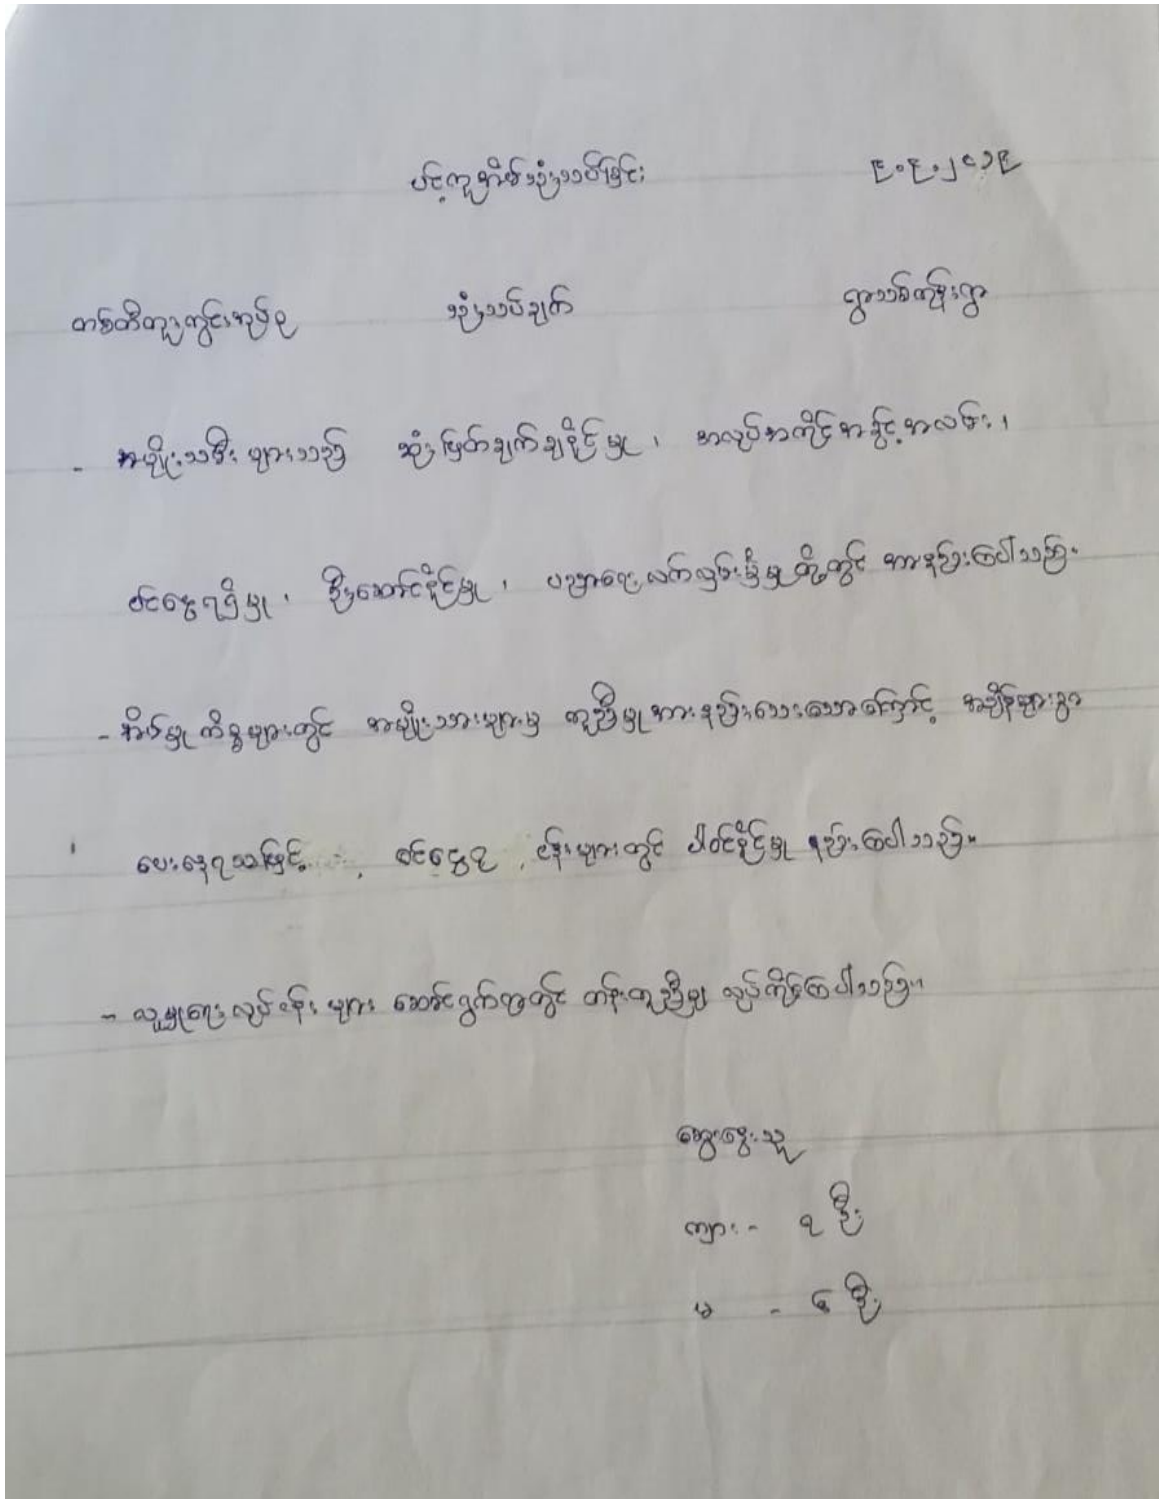 ပင့်ကူအိမ်သုံးသပ်ခြင်း ၉.၉.၂၀၁၉
တစ်ထိတူးတွင်းအုပ်စု သုံးသပ်ချက် ရွာသစ်ကုန်းရွာ
- အမျိုးသမီးများသည် ဆုံးဖြတ်ချက်ချနိုင်မှု ၊ အလုပ်အကိုင်အခွင့်အလမ်း ၊
ဝင်ငွေရရှိမှု ၊ ဦးဆောင်နိုင်မှု ၊ ပညာရေးလက်လှမ်းမှီမှုတို့တွင် အားနည်းကြပါသည်။
- အိမ်မှုကိစ္စများတွင် အမျိုးသားများမှ ကူညီမှုအားနည်းသေးသောကြောင့် အချိန်များစွာ
ပေးနေရသဖြင့် ဝင်ငွေရ ငန်းများတွင် ပါဝင်နိုင်မှု နည်းကြပါသည်။
- လူမှုရေးလုပ်ငန်းများ ဆောင်ရွက်ရာတွင် တန်းတူညီမျှ လုပ်ကိုင်ကြပါသည်။
ဆွေးနွေးသူ
ကျား - ၃ ဦး
မ - ၆ ဦး